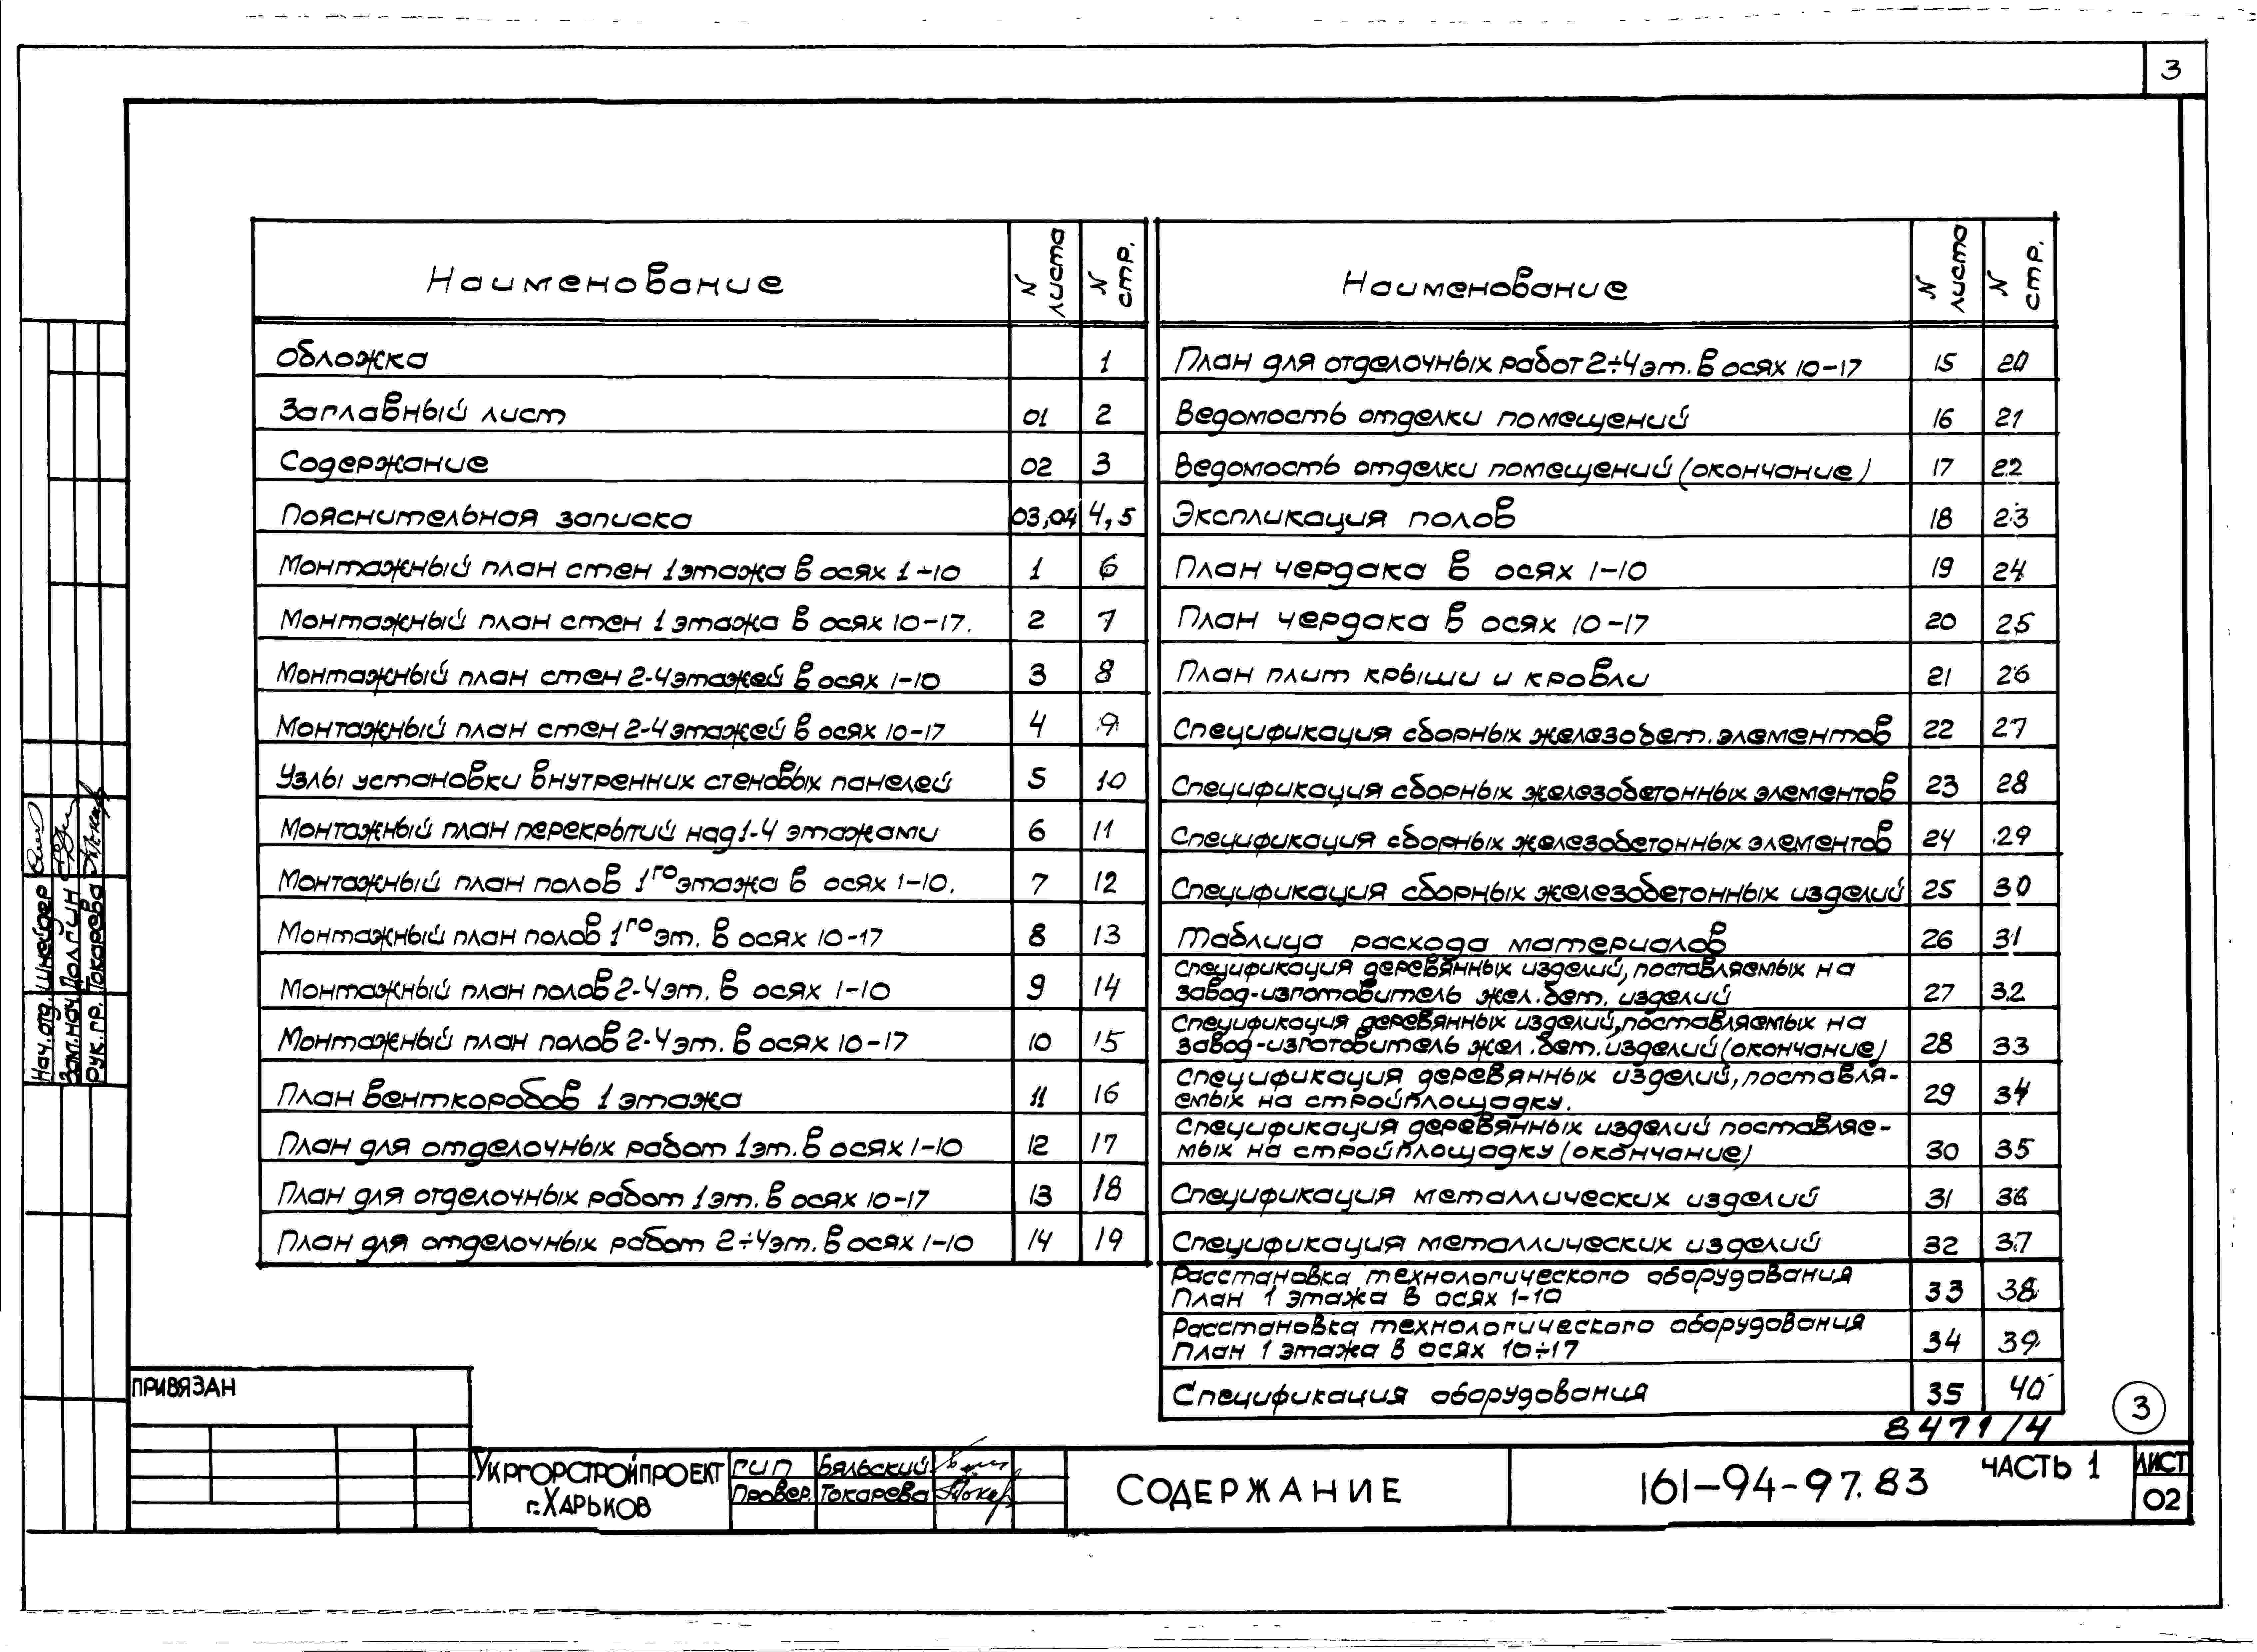 3
Наименование N листа N стр.
Обложка 1
Заглавный лист 01 2
Содержание 02 3
Пояснительная записка 03,04 4,5
Монтажный план стен 1 этажа в осях 1-10 1 6
Монтажный план стен 1 этажа в осях 10-17. 2 7
Монтажный план стен 2-4 этажей в осях 1-10 3 8
Монтажный план стен 2-4 этажей в осях 10-17 4 9
Узлы установки внутренних стеновых панелей 5 10
Монтажный план перекрытий над 1-4 этажами 6 11
Монтажный план полов 1го этажа в осях 1-10. 7 12
Монтажный план полов 1го эт. в осях 10-17 8 13
Монтажный план полов 2-4 эт. в осях 1-10 9 14
Монтажный план полов 2-4 эт. в осях 10-17 10 15
План венткоробов 1 этажа 11 16
План для отделочных работ 1 эт. в осях 1-10 12 17
План для отделочных работ 1 эт. в осях 10-17 13 18
План для отделочных работ 2÷4 эт. в осях 1-10 14 19
Наименование N листа N стр.
План для отделочных работ 2÷4 эт. в осях 10-17 15 20
Ведомость отделки помещений 16 21
Ведомость отделки помещений (окончание) 17 22
Экспликация полов 18 23
План чердака в осях 1-10 19 24
План чердака в осях 10-17 20 25
План плит крыши и кровли 21 26
Спецификация сборных железобет. элементов 22 27
Спецификация сборных железобетонных элементов 23 28
Спецификация сборных железобетонных элементов 24 29
Спецификация сборных железобетонных изделий 25 30
Таблица расхода материалов 26 31
Спецификация деревянных изделий, поставляемых на
завод-изготовитель жел. бет. изделий 27 32
Спецификация деревянных изделий, поставляемых на
завод-изготовитель жел. бет. изделий (окончание) 28 33
Спецификация деревянных изделий, поставля-
емых на стройплощадку. 29 34
Спецификация деревянных изделий поставляе-
мых на стройплощадку (окончание) 30 35
Спецификация металлических изделий 31 36
Спецификация металлических изделий 32 37
Расстановка технологического оборудования
План 1 этажа в осях 1-10 33 38
Расстановка технологического оборудования
План 1 этажа в осях 10÷17 34 39
Спецификация оборудования 35 40
8471/4
3
Нач.отд. Шнейдер
Зам.нач. Долгин
Рук.гр. Токарева
ПРИВЯЗАН
УКРГОРСТРОЙПРОЕКТ
г.ХАРЬКОВ
ГИП Бяльский
Провер. Токарева
СОДЕРЖАНИЕ
161-94-97.83 ЧАСТЬ 1
ЛИСТ
02